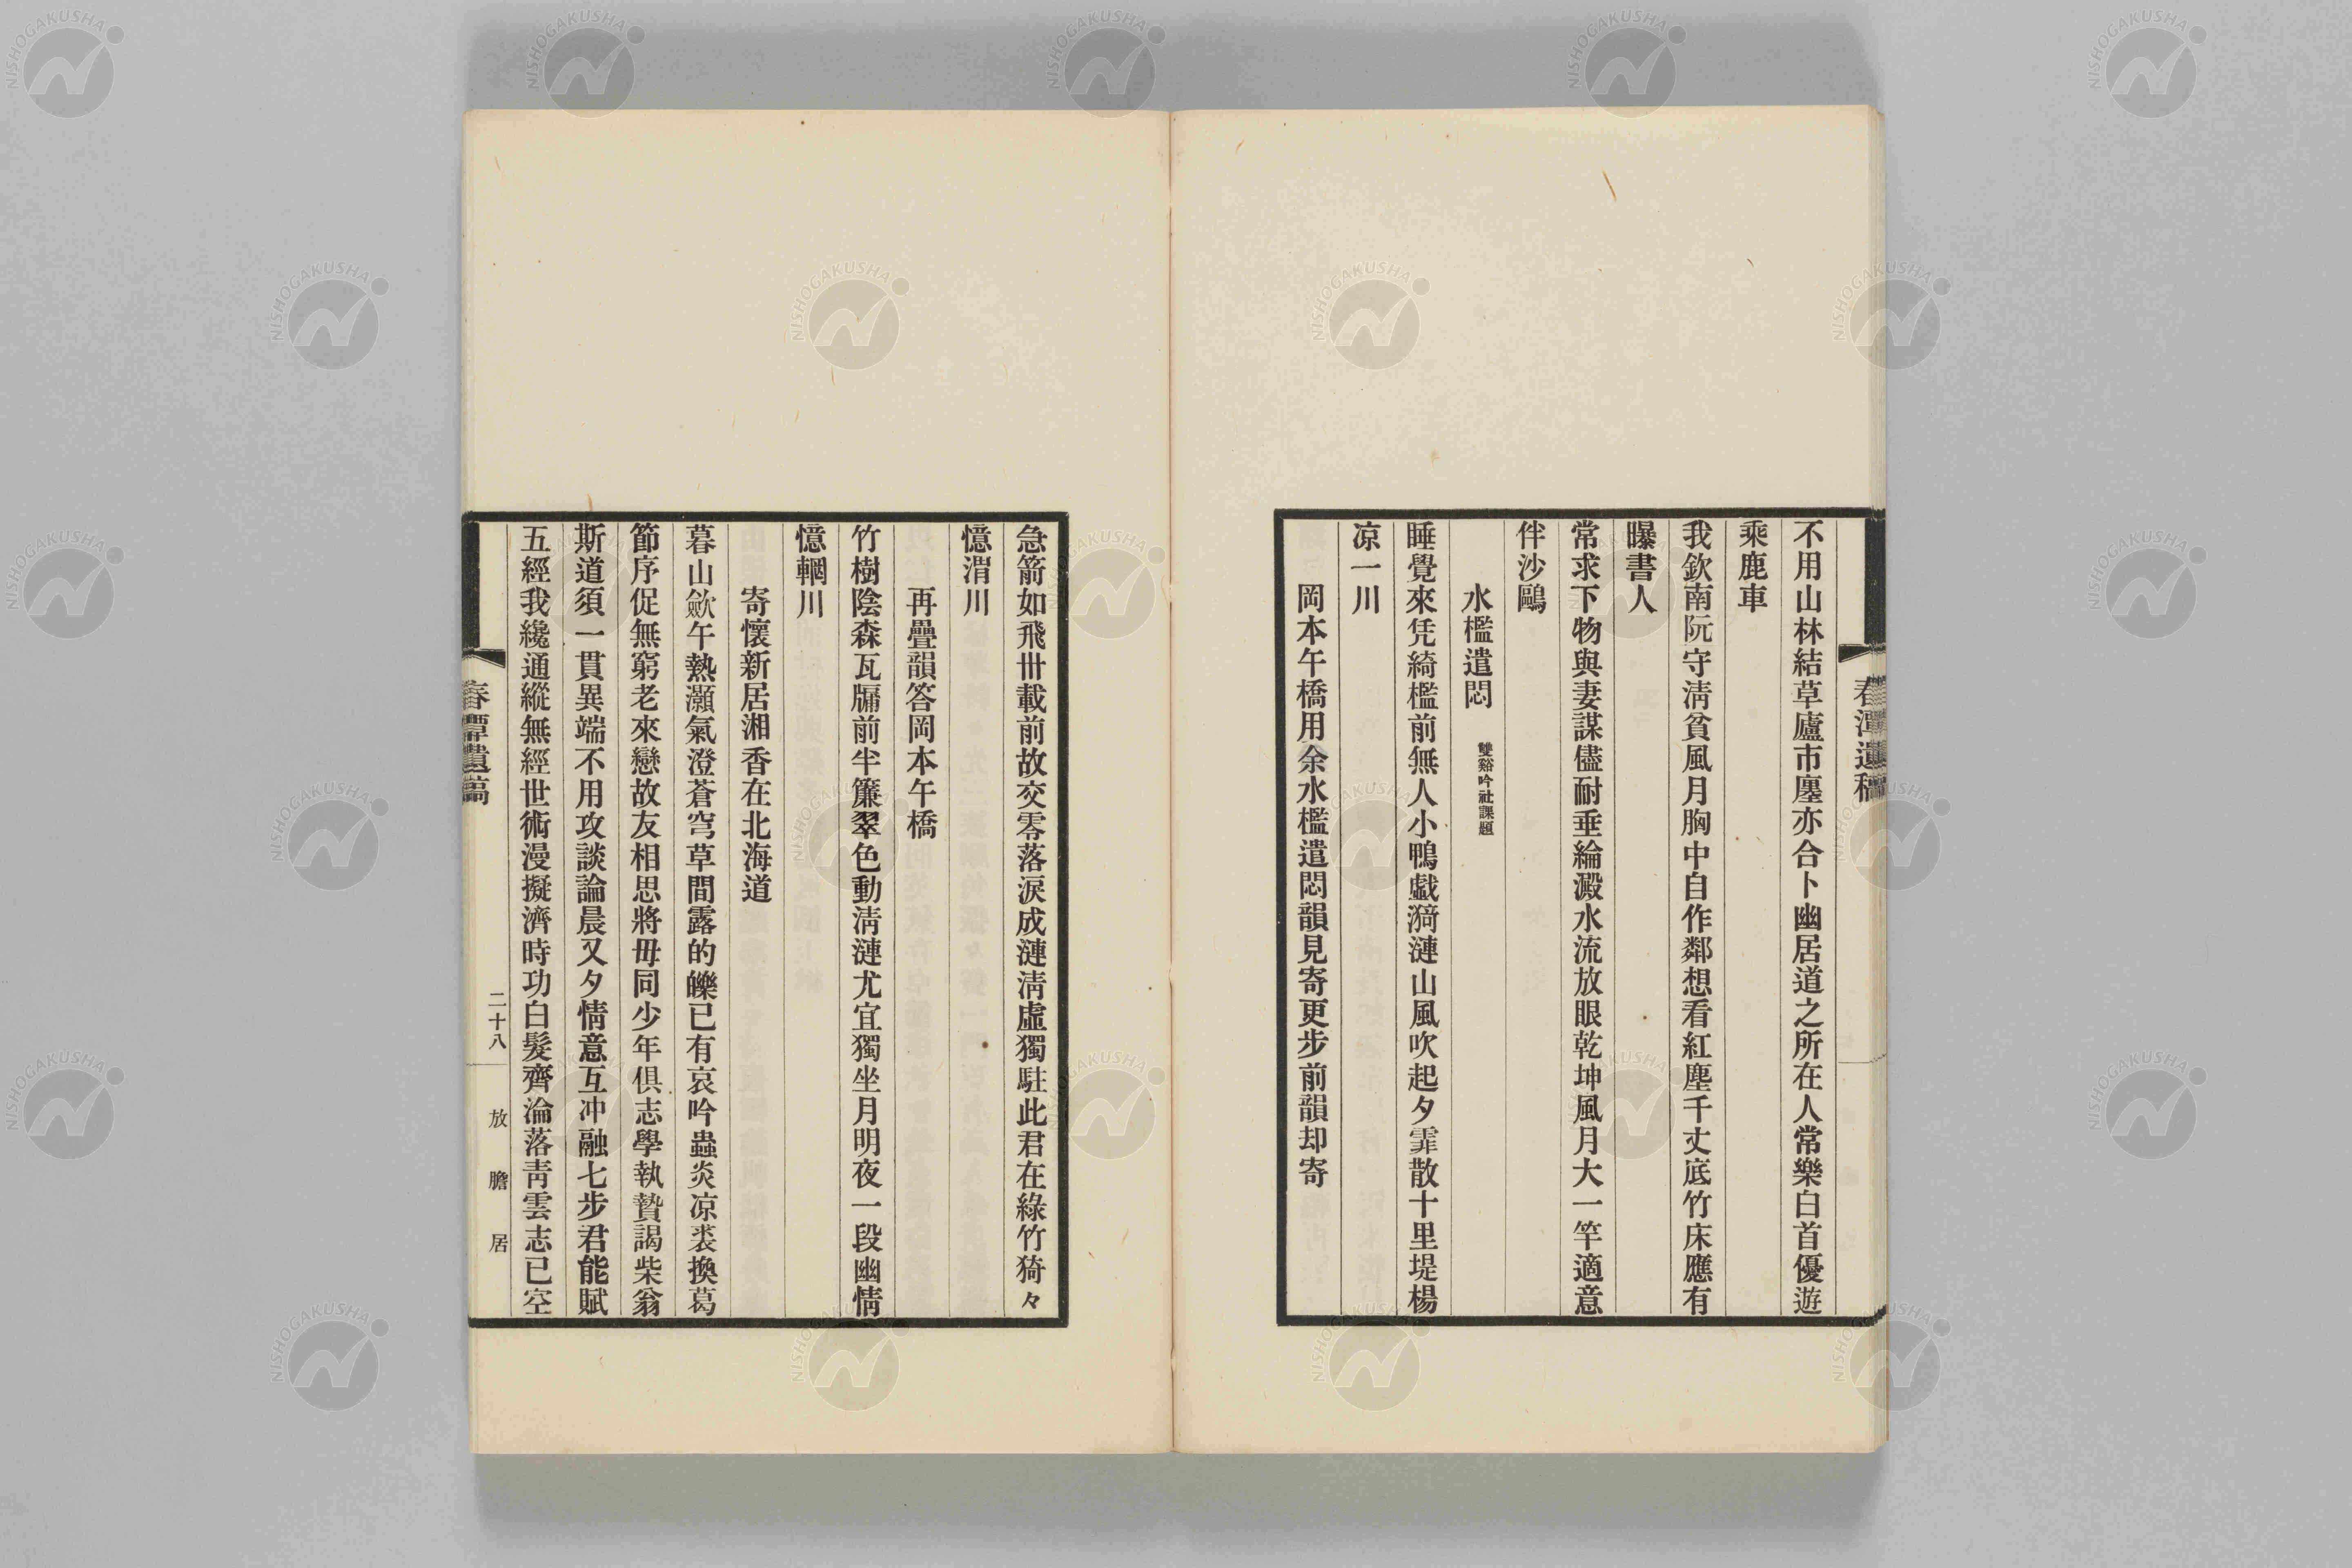 春潭遺稿
不用山林結草廬市廛亦合卜幽居道之所在人常樂白首優遊
乘鹿車
我欽南阮守淸貧風月胸中自作鄰想看紅塵千丈底竹床應有
曝書人
常求下物與妻謀儘耐垂綸澱水流放眼乾坤風月大一竿適意
伴沙鷗
水檻遣悶 雙谿吟社課題
睡覺來凭綺檻前無人小鴨戲漪漣山風吹起夕霏散十里堤楊
凉一川
岡本午橋用余水檻遣悶韻見寄更步前韻却寄
急箭如飛卅載前故交零落淚成漣淸虛獨駐此君在綠竹猗々
憶渭川
再疊韻答岡本午橋
竹樹陰森瓦牖前半簾翠色動淸漣尤宜獨坐月明夜一段幽情
憶輞川
寄懷新居湘香在北海道
暮山歛午熱灝氣澄蒼穹草間露的皪已有哀吟蟲炎凉裘換葛
節序促無窮老來戀故友相思將毋同少年俱志學執贄謁柴翁
斯道須一貫異端不用攻談論晨又夕情意互冲融七步君能賦
五經我纔通縱無經世術漫擬濟時功白髮齊淪落靑雲志已空
春潭遺稿
二十八
放膽居
NISHOGAKUSHA